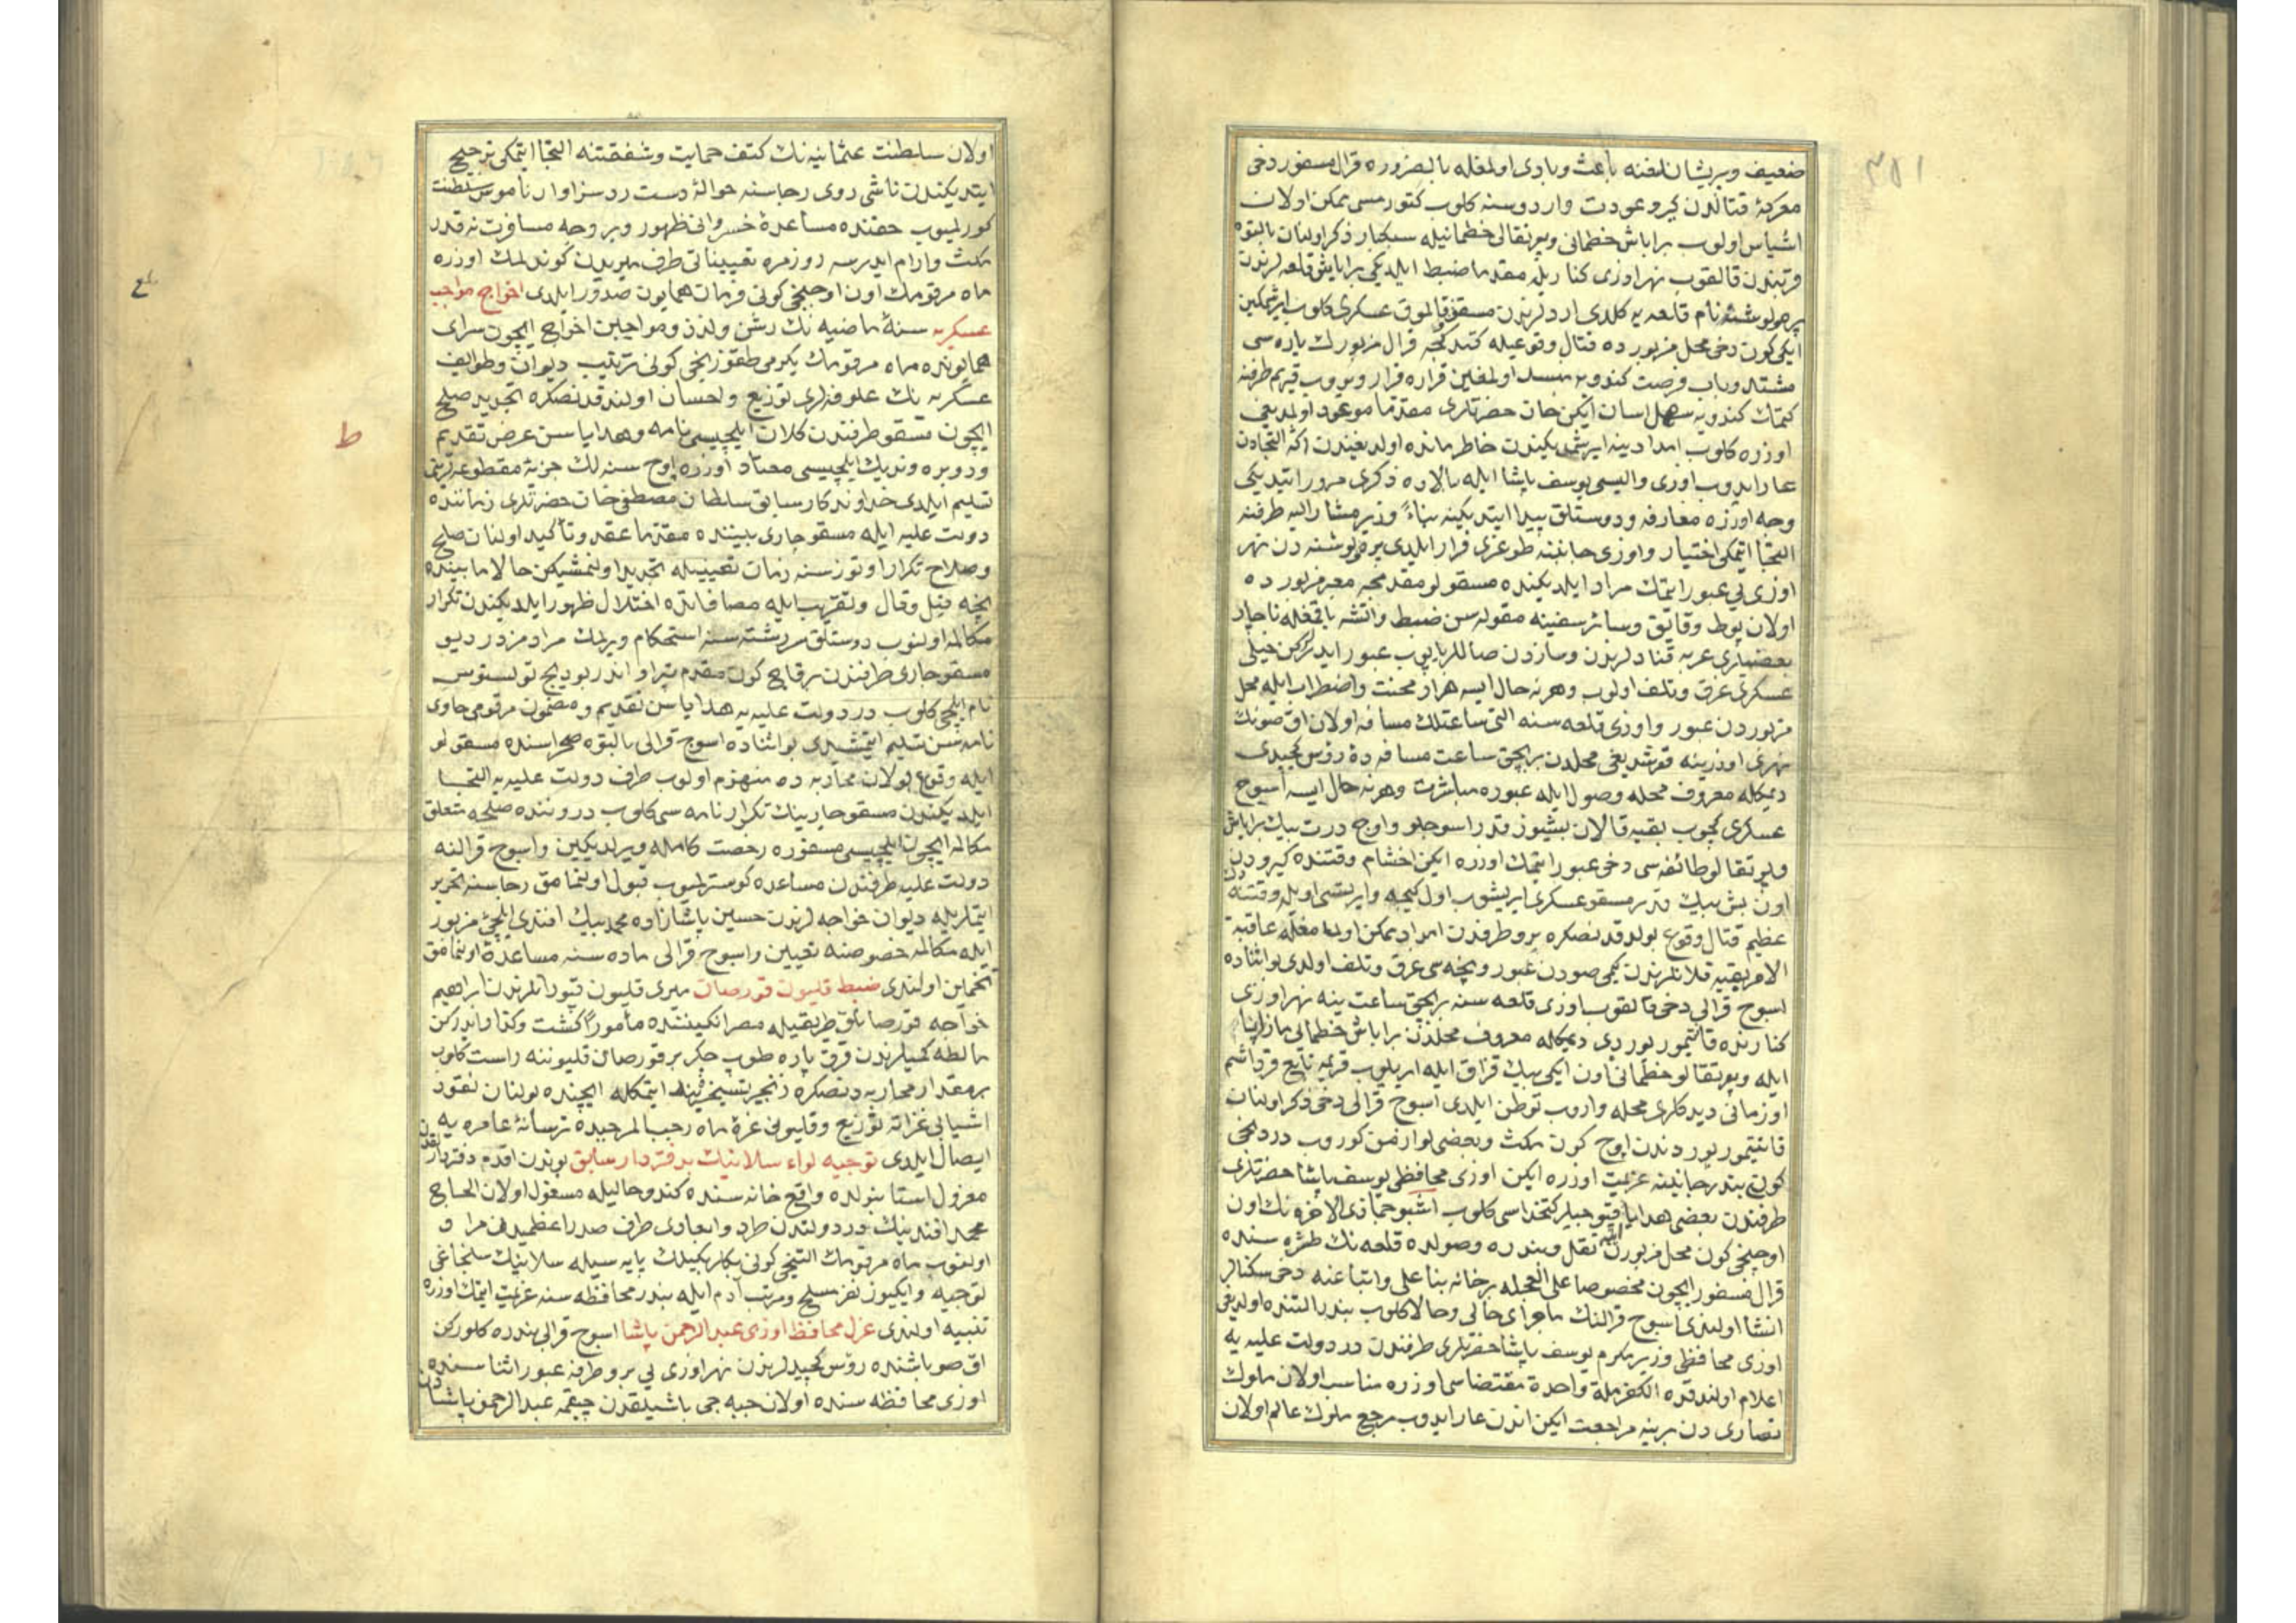 ٣٥١
ضعیف و پریشانلغنه باعث و بادی اولمغله بالضروره قرال مسفور دخی
معرکهٔ قتالدن كیرو عودت و اردوسنه كلوب كتورمسی ممكن اولان
اشیاسن اولوب براباش خطمانی و پورتقالی خطمانیله سبكبار ذكر اولنان پالتوه
قربندن قالقوب نهر اوزی كناریله مقدما ضبط ایلدیكی براباش قلعه لرندن
پرهولوشنه نام قلعه یه كلدی اردلرندن مسقو قالموق عسكری كلوب ایرشمكین
ایكی كون دخی محل مزبورده قتال وقوعیله كتدكجه قرال مزبورك یاره سی
مشتد و باب فرصت كندویه منسد اولمغین قراره فرار ویروب قریم طرفنه
كتمك كندویه سهل اسان ایكن خان حضرتلری مقدما موعود اولدیغی
اوزره كلوب امدادینه ایرشمدیكندن خاطرمانده اولدیغندن اكا التجادن
عار ایدوب اوزی والیسی یوسف پاشا ایله بالاده ذكری مرور ایتدیكی
وجه اوزره معارفه و دوستلق پیدا ایتدیكینه بناءً وزیر مشار الیه طرفنه
التجا ایتمكی اختیار و اوزی جانبنه طوغری فرار ایلدی پرهولوشنه دن نهر
اوزی یی عبور ایتمك مراد ایلدیكنده مسقولو مقدمجه معبر مزبورده
اولان بوط و قایق و سائر سفینه مقوله سن ضبط و اتشه یاقمغله ناچار
بعضیلری عربه قنادلرندن و سازدن صاللر یاپوب عبور ایدرلركن خیلی
عسكری غرق و تلف اولوب و هرنه حال ایسه هزار محنت و اضطراب ایله محل
مزبوردن عبور و اوزی قلعه سنه التی ساعتلك مسافه اولان اق صونك
نهری اوزرینه قوشدیغی محلدن بربچق ساعت مسافه ده روس كچیدی
دیمكله معروف محله وصول ایله عبوره مباشرت و هرنه حال ایسه اسوج
عسكری كچوب بقیه قالان بشیوز قدر اسوجلو و اوج درت بیك براباش
و پورتقالو طائفه سی دخی عبور ایتمك اوزره ایكن اخشام وقتنده كیرودن
اون بش بیك قدر مسقو عسكری ایریشوب اول كیجه و ایرتسی اویله وقتنه دك
عظیم قتال وقوع بولدقدنصكره برو طرفدن امداد ممكن اولمامغله عاقبة
الامر بقیه قلانلرندن كیمی صودن عبور و نیجه سی غرق و تلف اولدی بو اثناده
اسوج قرالی دخی قالقوب اوزی قلعه سنه بربچق ساعت ینه نهر اوزی
كنارنده قانتیمور یوردی دیمكله معروف محلدن براباش خطمانی مازاپا
ایله و پورتقالو خطمانی اون ایكی بیك قزاق ایله ایریلوب قریمه تابع قرداشم
اوزمانی دیدكلری محله واروب توطن ایلدی اسوج قرالی دخی ذكر اولنان
قانتیمور یوردندن اوج كون مكث و بعضی لوازمن كوروب دردنجی
كونی بندر جانبنه عزیمت اوزره ایكن اوزی محافظی یوسف پاشا حضرتلری
طرفندن بعضی هدایا ایله قپوجیلر كتخداسی كلوب اشبو جماذی الاخره نك اون
اوچنجی كون محل مزبوردن نقل و بندره وصولده قلعه نك طشره سنده
قرال مسفور ایچون مخصوصا علی العجله برخانه بنا علی و اتباعنه دخی سكنالر
انشا اولندی اسوج قرالنك ماجرای حالی و حالا كلوب بندر التنده اولدیغی
اوزی محافظی وزیر مكرم یوسف پاشا حضرتلری طرفندن در دولت علیه یه
اعلام اولندقده الكفر ملة واحدة مقتضاسی اوزره مناسب اولان ملوك
نصاری دن برینه مراجعت ایكن اندن عار ایدوب مرجع ملوك عالم اولان
اولان سلطنت عثمانیه نك كنف حمایت و شفقتنه التجا ایتمكی ترجیح
ایتدیكندن ناشی روی رجاسنه حوالهٔ دست رد سزاوار ناموس سلطنت
كورلمیوب حقنده مساعدهٔ خسروانی ظهور و بر وجه مسافرت نه قدر
مكث و ارام ایدرسه روزمره تعییناتی طرف میریدن كوندلمك اوزره
ماه مرقومك اون اوچنجی كونی فرمان همایون صدور ایلدی اخراج مواجب
عسكریه سنهٔ ماضیه نك رشن و لذن و مواجبن اخراج ایچون سرای
همایونده ماه مرقومك یكرمی طقوزنجی كونی ترتیب دیوان و طوایف
عسكریه نك علوفه لری توزیع و احسان اولندقدنصكره تجدید صلح
ایچون مسقو طرفندن كلان ایلچیسی نامه و هدایاسن عرض تقدیم
و دوبره وندیك ایلچیسی معتاد اوزره اوج سنه لك جزیهٔ مقطوعه لرینی
تسلیم ایلدی خداوندكار سابق سلطان مصطفی خان حضرتلری زماننده
دولت علیه ایله مسقو چاری بیننده مقدما عقد و تأكید اولنان صلح
و صلاح تكرار اوتوز سنه زمان تعیینیله تجدید اولنمشیكن حالا مابینده
نیجه قیل و قال و تقریب ایله مصافاتده اختلال ظهور ایلدیكندن تكرار
مكالمه اولنوب دوستلق سررشته سنه استحكام ویرلمك مرادمزدر دیو
مسقو چاری طرفندن برقاج كون مقدم پتراو اندربودیج تولستوس
نام ایلچی كلوب در دولت علیه یه هدایاسن تقدیم و مضمون مرقومی حاوی
نامه سن تسلیم ایتمشیدی بو اثناده اسوج قرالی پالتوه صحراسنده مسقولو
ایله وقوع بولان محاربه ده منهزم اولوب طرف دولت علیه یه التجا
ایلدیكندن مسقو چارینك تكرار نامه سی كلوب دروننده صلحه متعلق
مكالمه ایچون ایلچیسی مسفوره رخصت كامله ویرلدیكین و اسوج قرالنه
دولت علیه طرفندن مساعده كوسترلمیوب قبول اولنمامق رجاسنه تحریر
ایتملریله دیوان خواجه لرندن حسین پاشازاده محمد بیك افندی ایلچیٔ مزبور
ایله مكالمه خصوصنه تعیین و اسوج قرالی ماده سنه مساعده اولنمامق
تخمین اولندی ضبط قلیون قورصان میری قلیون قپودانلرندن ابراهیم
خواجه قورصانلق طریقیله مصر انكیننده مأموراً كشت و كذار ایدركن
مالطه كمیلرندن قرق پاره طوپ چكر بر قورصان قلیوننه راست كلوب
برمقدار محاربه دنصكره زنجیر تسخیرینه ایتمكله ایچنده بولنان نقود
اشیایی غزاته توزیع و قلیونی غرهٔ ماه رجب المرجبده ترسانهٔ عامره یه
ایصال ایلدی توجیه لواء سلانیك بدفتردار سابق بوندن اقدم دفتردارلقدن
معزول استانبولده واقع خانه سنده كندو حالیله مسغول اولان الحاج
محمد افندینك در دولتدن طرد و ابعادی طرف صدر اعظمیدن مراد
اولنوب ماه مرقومك التنجی كونی بكلربكیلك پایه سیله سلانیك سنجاغی
توجیه و ایكیوز نفر مسلح و مرتب آدم ایله بندر محافظه سنه عزیمت ایتمك اوزره
تنبیه اولندی عزل محافظ اوزی عبد الرحمن پاشا اسوج قرالی بندره كلوركن
اق صو باشنده روس كچیدلرندن نهر اوزی یی برو طرفه عبور اثناسنده
اوزی محافظه سنده اولان جبه جی باشیلقدن چیقمه عبد الرحمن پاشادن
ط